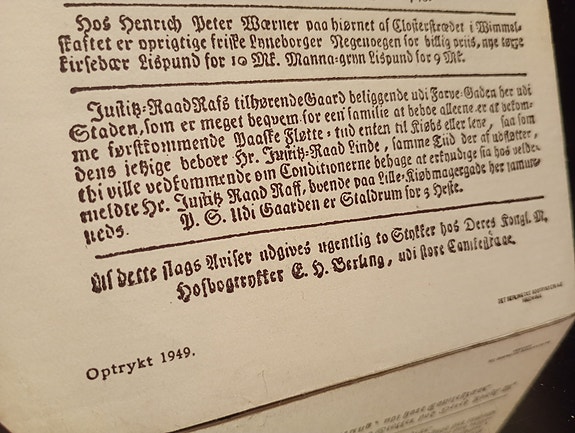 Hos Henrich Peter Wærner paa hiørnet af Closterstrædet i Wimmel-
skaftet er oprigtige friske Lyneborger Negenoegen for billig priis, nye
kirsebær Lispund for 10 Mk. Manna-gryn Lispund for 9 Mk.
Justitz-Raad Rafs tilhørende Gaard beliggende udi Farve-Gaden her udi
Staden, som er meget beqvem for een familie at beboe alleene er at bekom-
me førstkommende Paaske Fløtte-tid enten til Kiøbs eller leye, saa som
dens jetzige beboer Hr. Justitz-Raad Linde, samme Tiid der af udfløtter,
thi ville vedkommende om Conditionerne behage at erkyndige sig hos velbe-
meldte Hr. Justitz Raad Raff, boende paa Lille-Kiøbmagergade her
P. S. Udi Gaarden er Staldrum for 3 Heste.
Af dette slags Aviser udgives ugentlig to Stykker hos Deres Kongl. M.
Hofbogtrykker E. H. Berling, udi store Canikestræde.
Optrykt 1949.